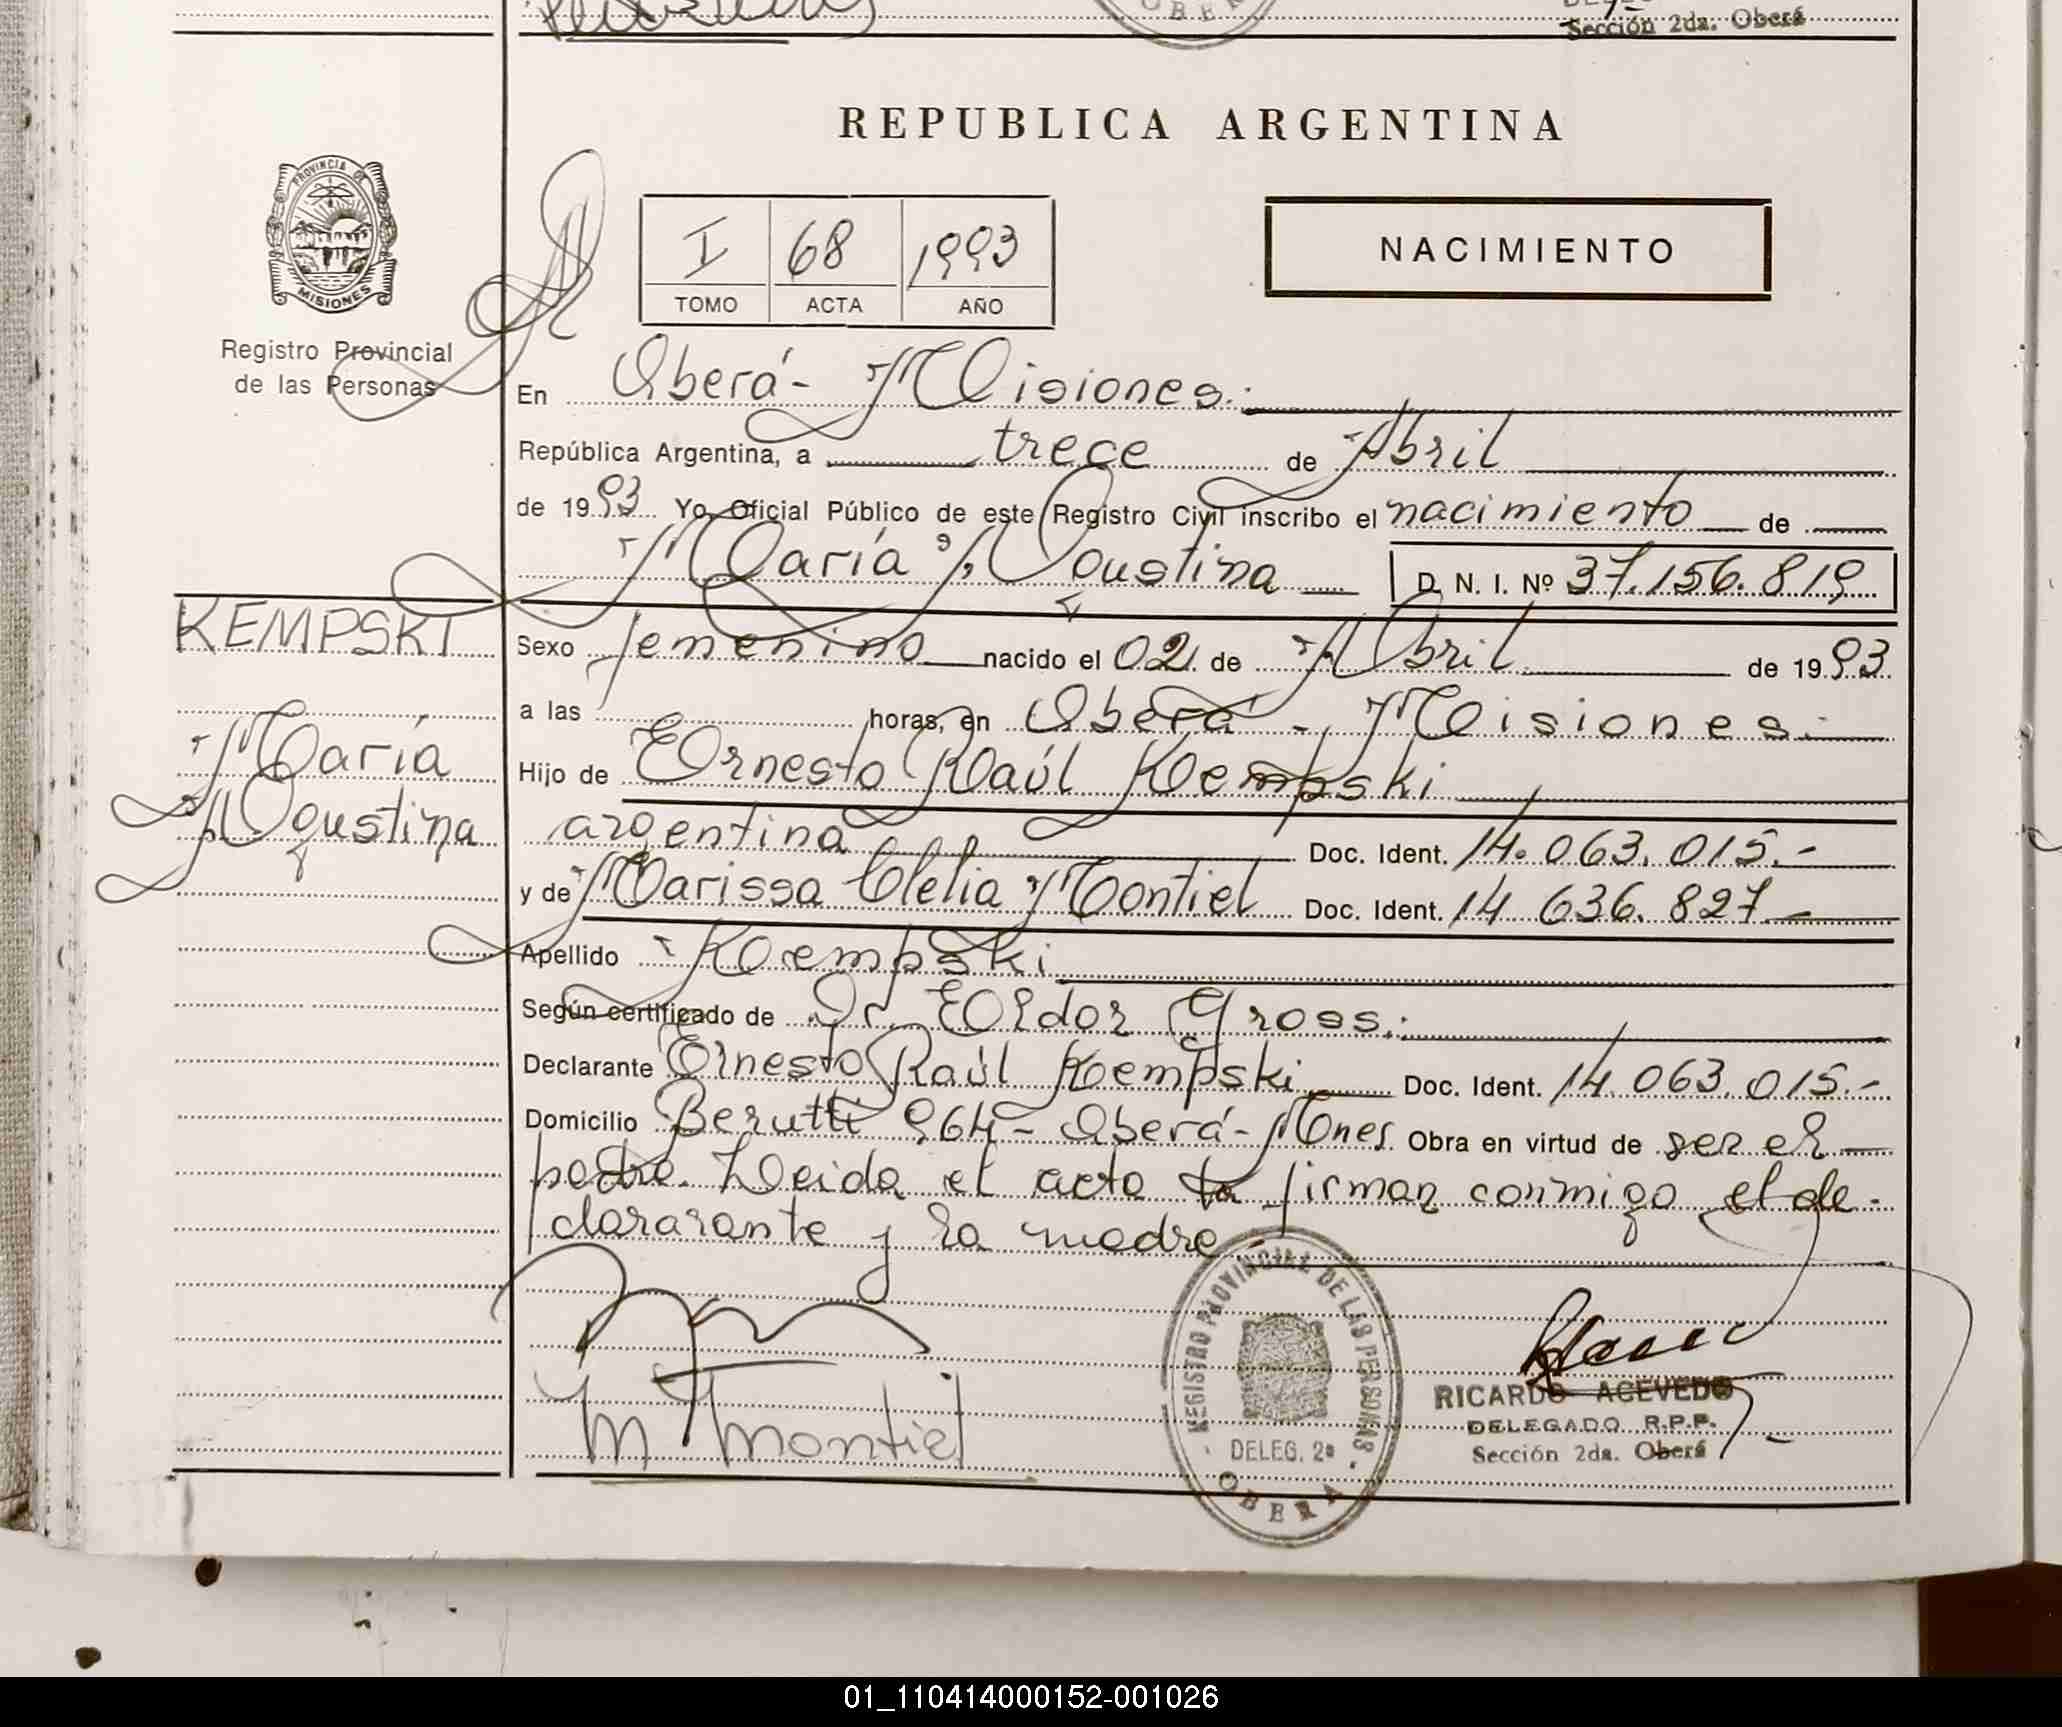 OBERÁ
Sección 2da. Oberá
REPUBLICA ARGENTINA
PROVINCIA DE
MISIONES
Registro Provincial
de las Personas
I 68 1993
TOMO ACTA AÑO
NACIMIENTO
En Oberá- Misiones.
República Argentina, a trece de Abril
de 1993 Yo, Oficial Público de este Registro Civil inscribo el nacimiento de
María Agustina D. N. I. Nº 37.156.819
KEMPSKI
María
Agustina
Sexo femenino nacido el 02 de Abril de 1993
a las horas, en Oberá - Misiones.
Hijo de Ernesto Raúl Kempski
argentina Doc. Ident. 14.063.015.-
y de Marissa Clelia Montiel Doc. Ident. 14 636.827.-
Apellido Kempski
Según certificado de Dr. Eldor Gross.
Declarante Ernesto Raúl Kempski Doc. Ident. 14.063.015.-
Domicilio Berutti 964- Oberá- Mnes. Obra en virtud de ser el
padre. Leida el acta la firman conmigo el de-
clararante y la madre.-
M Montiel
REGISTRO PROVINCIAL DE LAS PERSONAS
DELEG. 2ª
OBERA
RICARDO ACEVEDO
DELEGADO R.P.P.
Sección 2da. Oberá
01_110414000152-001026